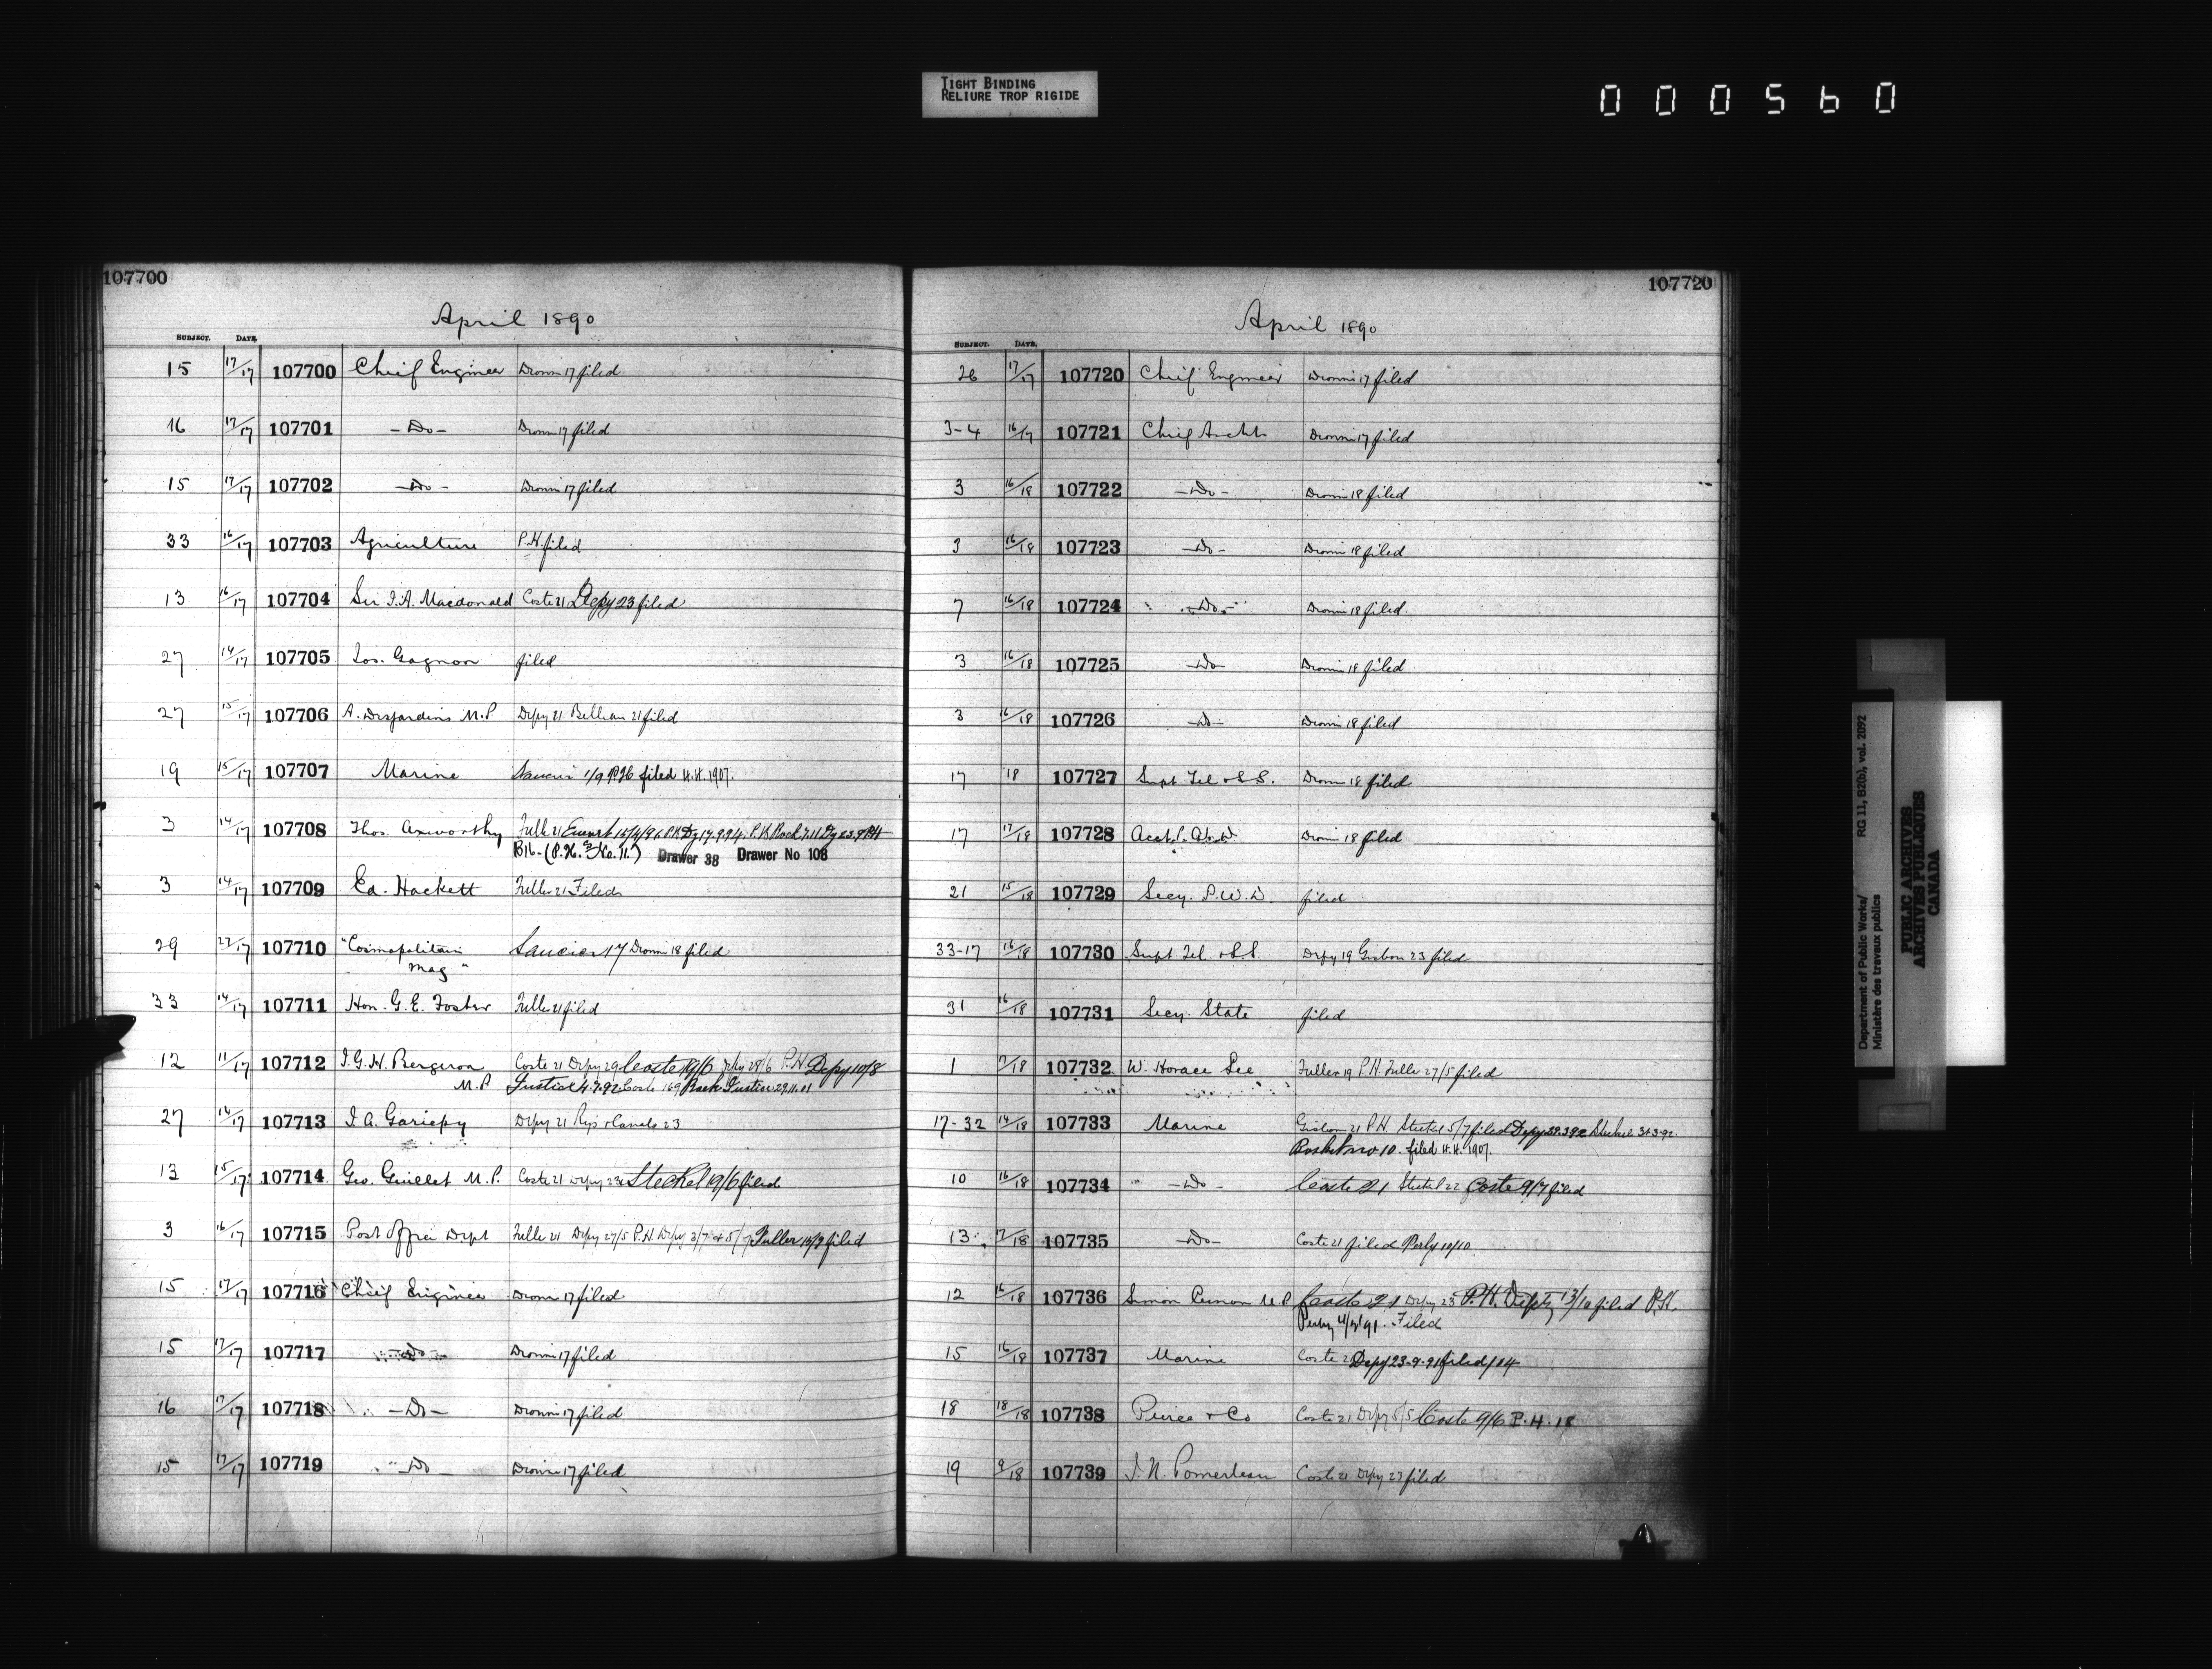 TIGHT BINDING
RELIURE TROP RIGIDE
000560
107700
April 1890
SUBJECT. DATE.
15 17/17 107700 Chief Engineer 17 filed
16 17/17 107701 - Do - 17 filed
15 17/17 107702 - Do - 17 filed
33 16/17 107703 Agriculture P.H. filed
13 16/17 107704 Sir J.A. Macdonald Coste 21 Depy 23 filed
27 14/17 107705 Jos. Gagnon filed
27 15/17 107706 A. Desjardins M.P. Depy 21 21 filed
19 15/17 107707 Marine 1/9 P.H. filed H.H. 1907.
3 14/17 107708 Thos. Axworthy Fuller 21
B16- (P.H. No. 11.) Drawer 38 Drawer No 108
3 14/17 107709 Ed. Hackett Fuller 21 Filed
29 107710 "Cosmopolitain Saucier 17 18 filed
Mag"
33 14/17 107711 Hon. G. E. Foster Fuller 21 filed
12 11/17 107712 J.G.H. Bergeron Coste 21 Depy 29 Coste 19/6 Depy 28/6 P.H. Depy 10/8
M.P Justice 4.7.92 Coste 169 Back Justice 29.11.01
27 14/17 107713 J. A. Gariepy Depy 21 Rys & Canals 23
13 15/17 107714 Geo. Guillet M.P. Coste 21 Depy 23 Steckel 19/6 filed
3 16/17 107715 Post Office Dept Fuller 21 Depy 27/5 P.H. Depy 3/7 Fuller filed
15 17/17 107716 Chief Engineer 17 filed
15 17/17 107717 - Do - 17 filed
16 17/17 107718 - Do - 17 filed
15 17/17 107719 - Do - 17 filed
107720
April 1890
SUBJECT. DATE.
26 17/17 107720 Chief Engineer 17 filed
3-4 16/17 107721 Chief Archt. 17 filed
3 16/18 107722 - Do - 18 filed
3 16/18 107723 - Do - 18 filed
7 16/18 107724 - Do - 18 filed
3 16/18 107725 - Do - 18 filed
3 16/18 107726 - Do - 18 filed
17 18 107727 Supt. Tel. & S.S. 18 filed
17 17/18 107728 18 filed
21 15/18 107729 Secy. P.W.D. filed
33-17 16/18 107730 Supt. Tel. & S.S. Depy 19 Gisborn 23 filed
31 16/18 107731 Secy. State filed
1 17/18 107732 W. Horace Lee Fuller 19 P.H. Fuller 27/5 filed
17-32 14/18 107733 Marine Gisborn 21 P.H. Steckel 5/7 filed Depy Steckel
10. filed H.H. 1907.
10 16/18 107734 " - Do - Coste 21 Steckel 22 Coste 9/7 filed
13 17/18 107735 - Do - Coste 21 filed Perly 10/10
12 16/18 107736 Simon M.P. Coste 21 Depy 23 P.H. Depty 13/10 filed P.H.
Perley '91. Filed
15 16/18 107737 Marine Coste 21 Depy 23-9-91 filed
18 18/18 107738 Peirce & Co Coste 21 Depy 5/5 Coste 9/6 P.H. 18
19 9/18 107739 J. N. Pomerleau Coste 21 Depy 23 filed
Department of Public Works/ RG 11, B2(b), vol. 2092
Ministère des travaux publics
PUBLIC ARCHIVES
ARCHIVES PUBLIQUES
CANADA